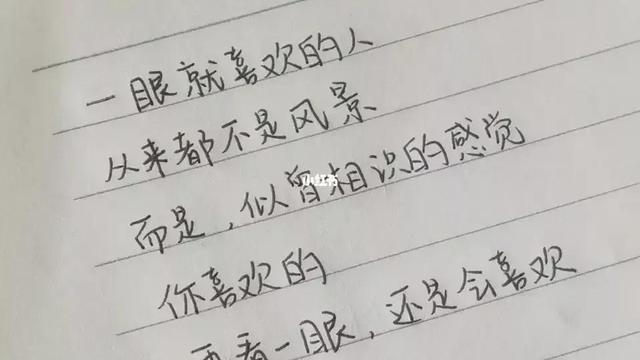 一眼就喜欢的人
从来都不是风景
而是，似曾相识的感觉
小红书
你喜欢的
再看一眼，还是会喜欢